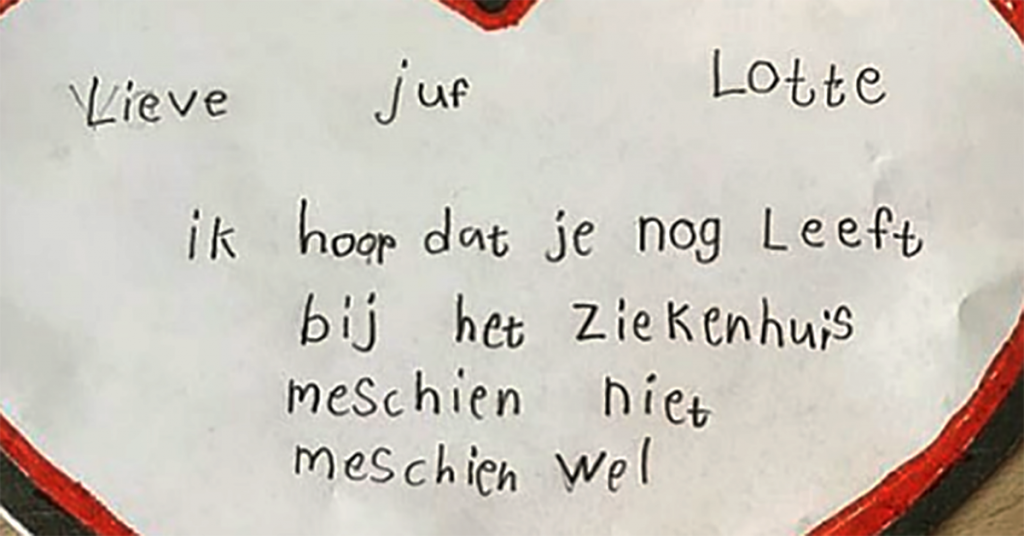 Lieve juf Lotte
ik hoop dat je nog Leeft
bij het ziekenhuis
meschien niet
meschien wel